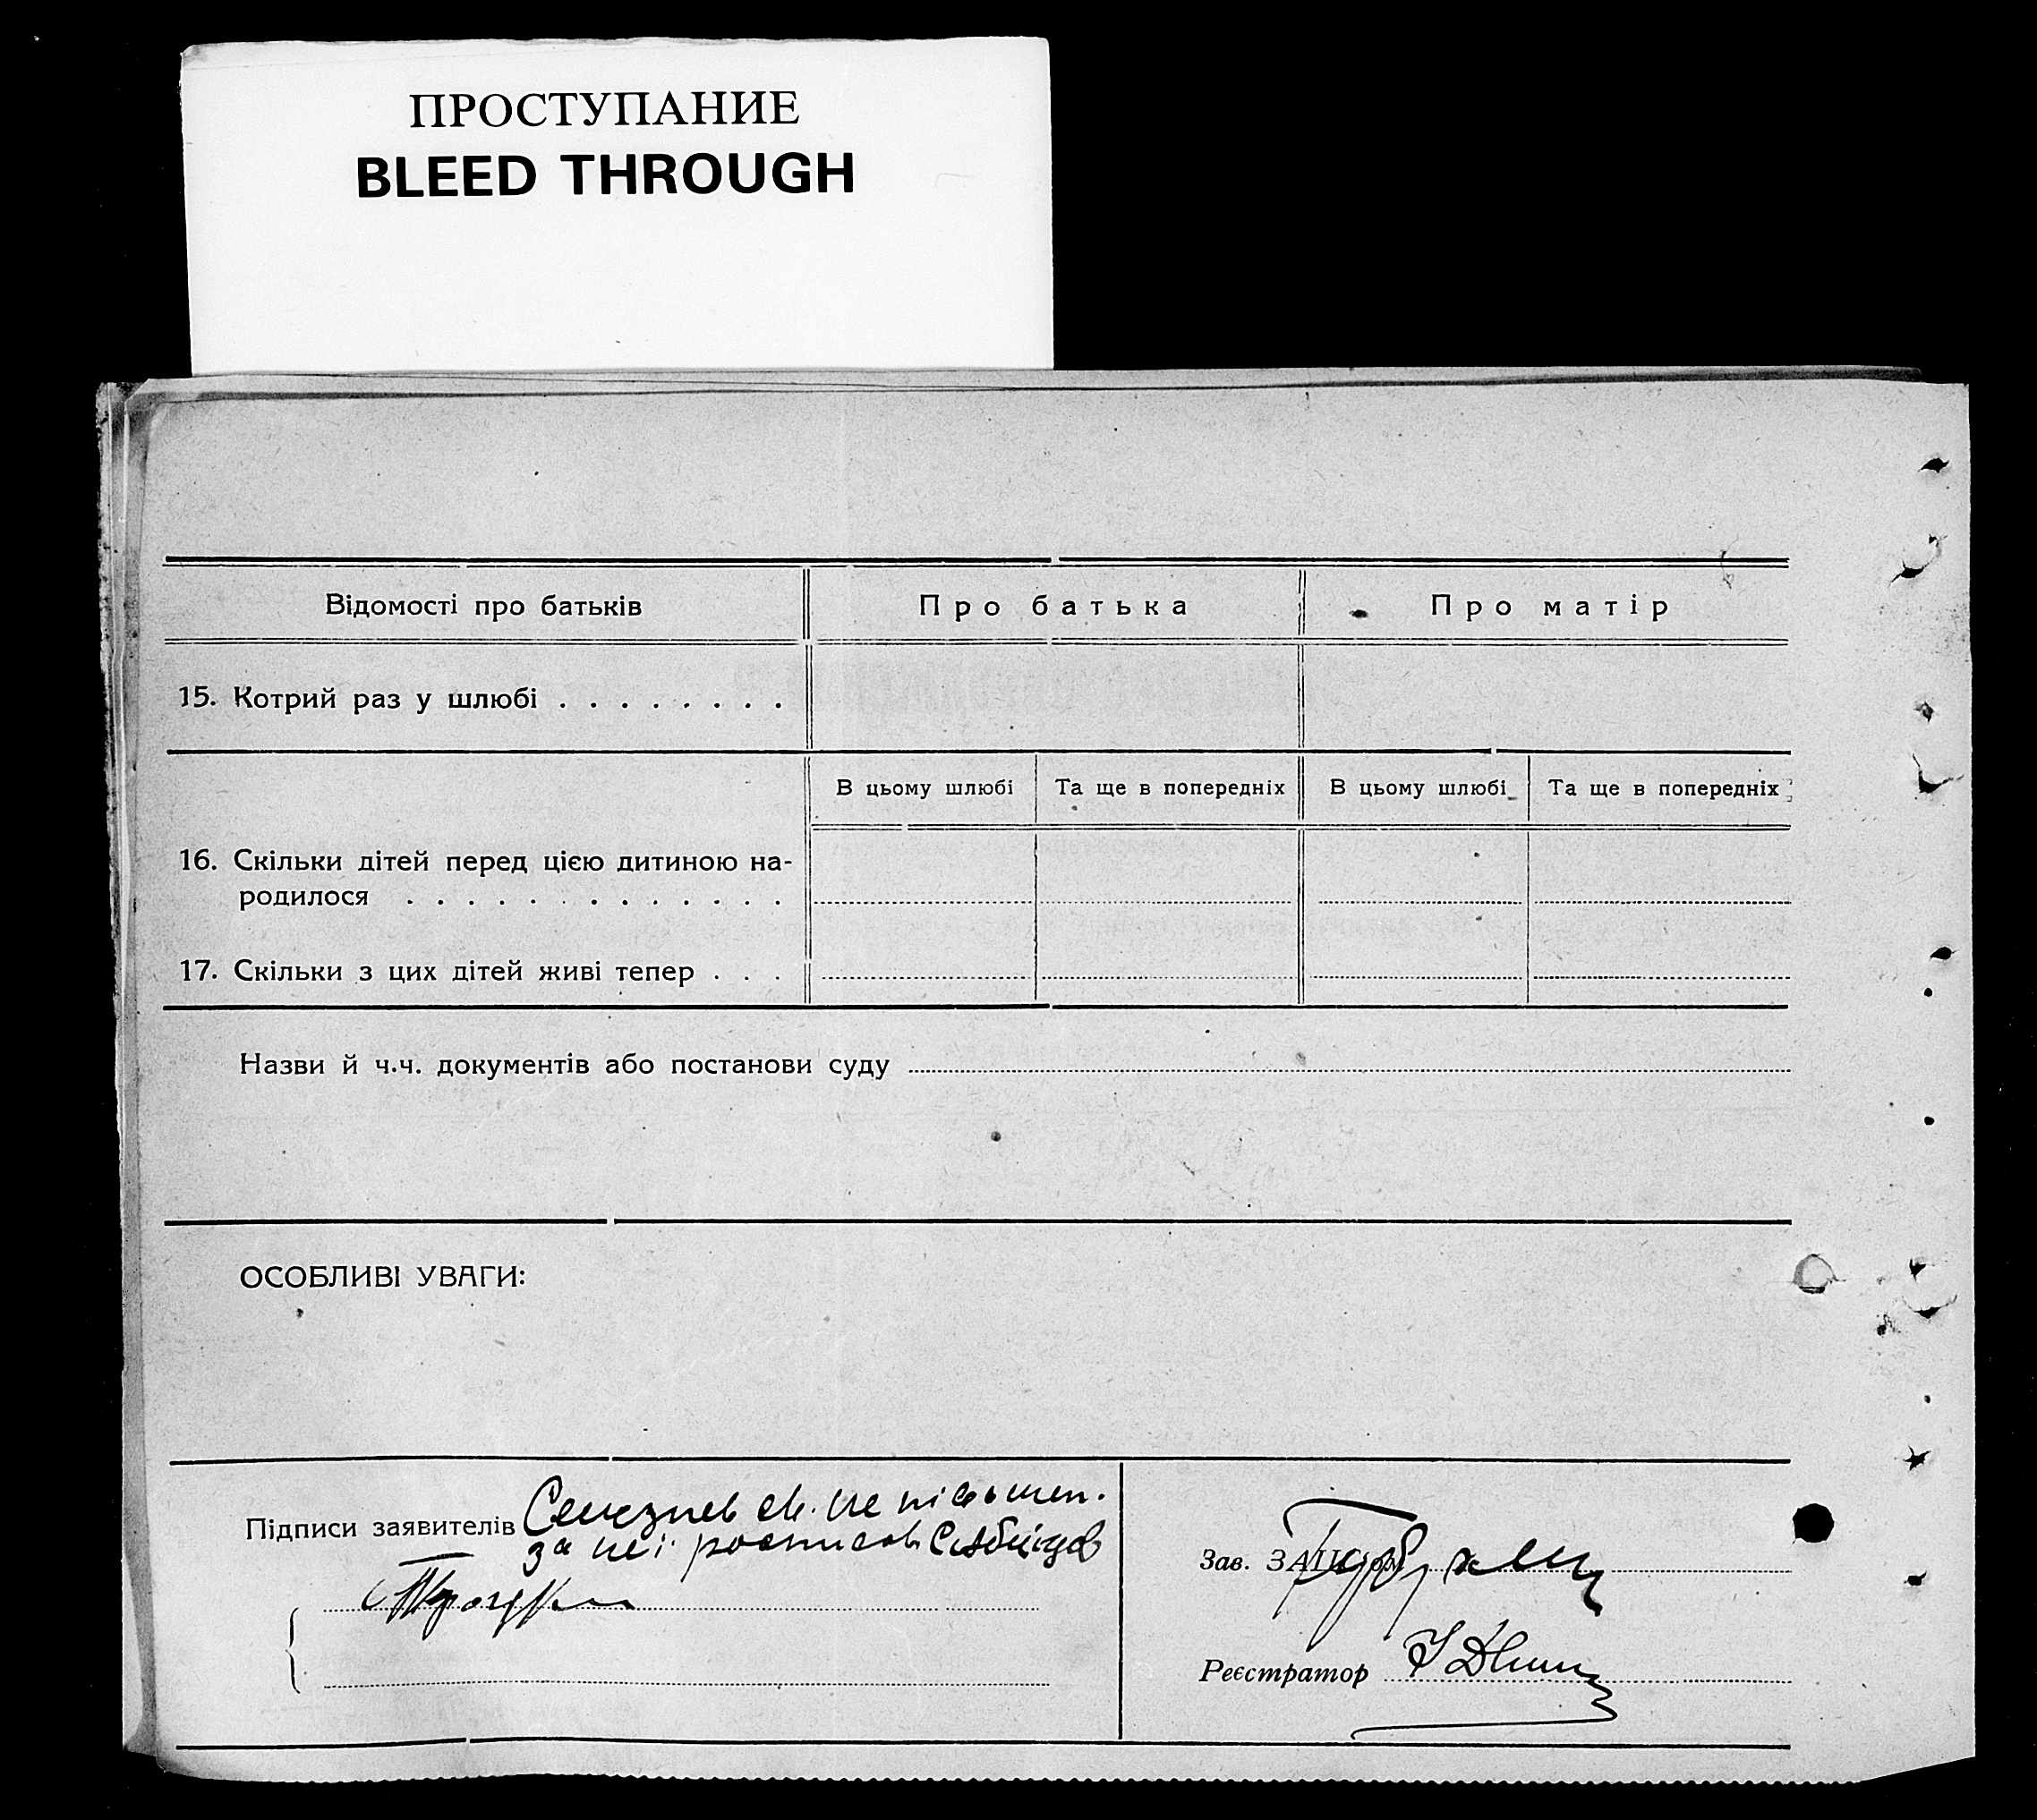 ПРОСТУПАНИЕ
BLEED THROUGH
Відомості про батьків
Про батька
Про матір
15. Котрий раз у шлюбі . . . . . . . .
В цьому шлюбі
Та ще в попередніх
В цьому шлюбі
Та ще в попередніх
16. Скільки дітей перед цією дитиною на-
родилося . . . . . . . . . . . . .
17. Скільки з цих дітей живі тепер . . .
Назви й ч.ч. документів або постанови суду
ОСОБЛИВІ УВАГИ:
Підписи заявителів
за неї
Зав. ЗАГС'ом
Реєстратор